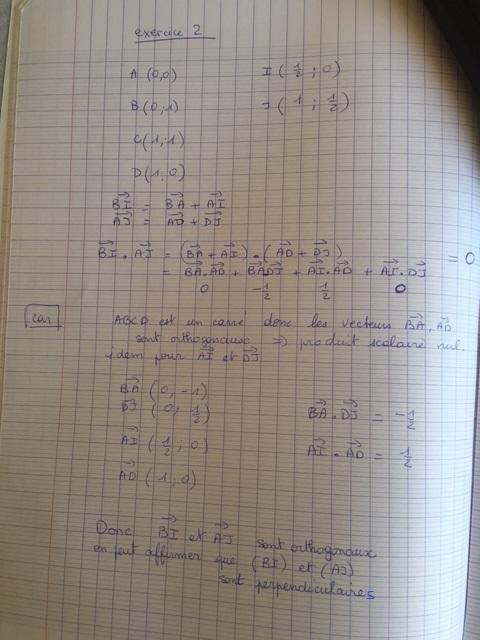 exercice 2
A (0,0) I ( 1/2 ; 0)
B (0;1) J ( 1 ; 1/2 )
C(1;1)
D(1,0)
BI = BA + AI
AJ = AD + DJ
BI . AJ = (BA + AI) . (AD + DJ) = 0
= BA.AD + BA DJ + AI.AD + AI.DJ
0 -1/2 1/2 0
car ABCD est un carré donc les vecteurs BA, AD
sont orthogonaux => produit scalaire nul.
idem pour AI et DJ
BA (0, -1)
DJ (0; 1/2) BA . DJ = -1/2
AI (1/2 ; 0) AI . AD = 1/2
AD (1,0)
Donc BI et AJ sont orthogonaux
on peut affirmer que (BI) et (AJ)
sont perpendiculaires